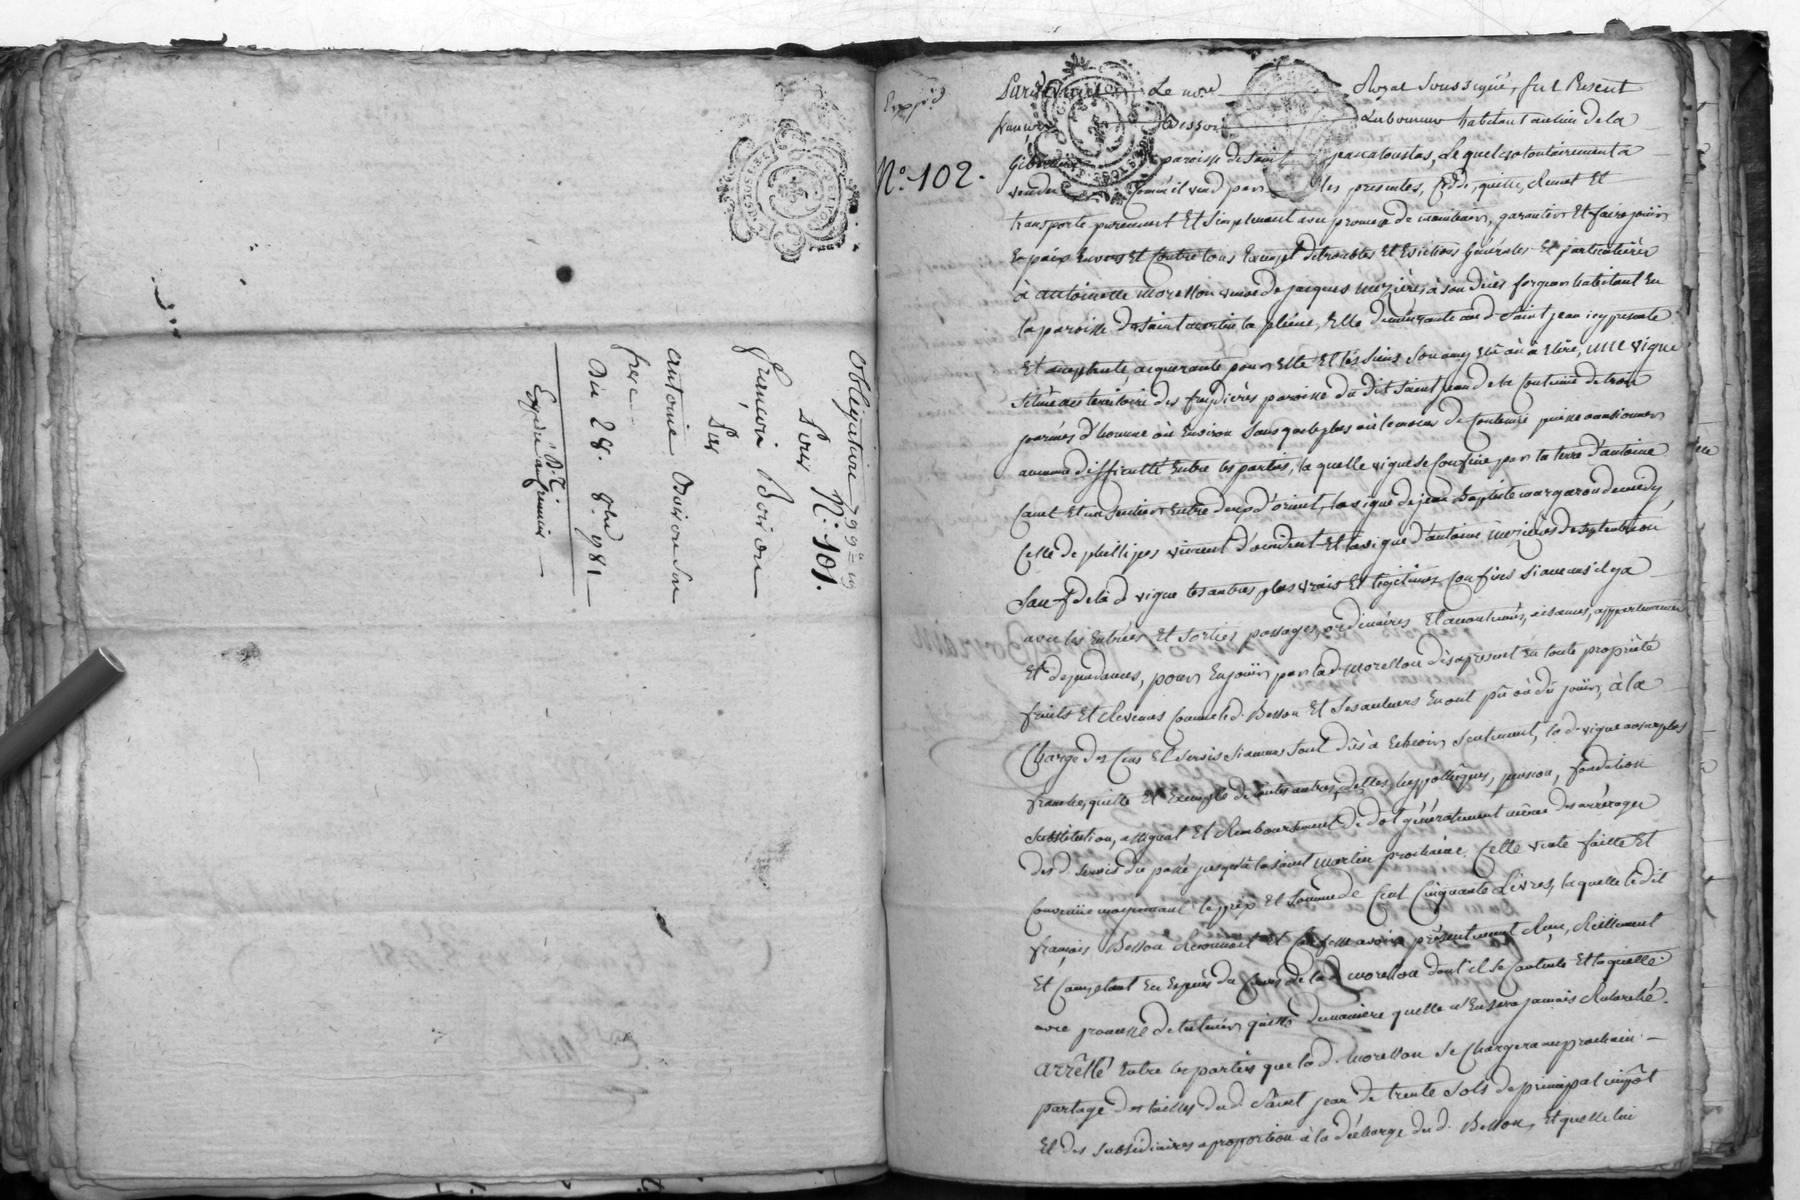 Obbligature 799#
Sous N.° 101.
françois Boiron
Par
antoine Boiron son
frere
Du 28. 8.bre 1781
Expédié
N.° 102.
Pardevant Le no.re Royal Soussigné, fut Présent
françois Besson Laboureur habitant au lieu de la
paroisse de Saint jean a toustas, Lequel volontairement a
vendu Comme il vend par les presentes, cedde, quitte, Remet Et
transporte purement Et Simplement avec promesse de maintenir, garantir Et faire jouir
En paix Envers Et Contre tous Exempt de troubles Et Evictions Générales Et particulières
à antoinette morellon veuve de jacques mezière, à son décès forgeron habitant En
la paroisse de Saint martin la pleine, Elle demeurante aud. Saint jean icy presente
Et acceptante acquerante pour Elle Et les Siens Son amy élû ou à Elire, une vigne
Située au territoire des paroisse du dit Saint jean de la Contenue de trois
journés d'homme où Environ Sans que le plus où le moins de Contenue puisse occasionner
aucune difficulté Entre les parties, la quelle vigne se Confine par la terre d'antoine
Canet Et un Sentier Entre deux d'orient, la vigne de jean Baptiste margaron de midy
Celle de phillipes vincent d'occident Et la vigne d'antoine mezières de Septentrion
Sauf de lad. vigne les autres plus vrais Et légitimes Confins Si aucuns il y a
avec les Entrées Et Sorties passages, ordinaires Et accoutumés, aisances, appartenances
Et dépendances, pour En jouir par lad. morellon dès apresent En toute propriété
fruits Et Revenus Comme led. Besson Et Ses auteurs En ont pû où dû jouir, à la
Charge des Cens Et Servis Si aucuns Sont dûs à Echeoir Seulement, la d. vigne au surplus
franche, quitte Et Exempte de toutes autres dettes, hyppothèques, pension, fondation
Substitution, assignat Et Remboursement de dot généralement même des arrérages
des d. Servis du passé jusqu'à la Saint Martin prochaine. Cette vente faitte Et
Convenue moyennant le prix Et Somme de Cent Cinquante Livres, laquelle le dit
françois Besson Reconnoit Et Confesse avoir présentement Reçu, Réellement
Et Comptant En Espèces du Cours de lad. morellon dont il Se Contente Et la quelle
avec promesse de tenir quitte de manière quelle n'En Sera jamais Recherché.
Arrêtté Entre les parties que lad. morellon Se Chargera au prochain
partage des tailles dud. Saint jean de trente Sols de principal impôt
Et des Subsidiaires a proportion à la décharge du d. Besson, Et quelle lui